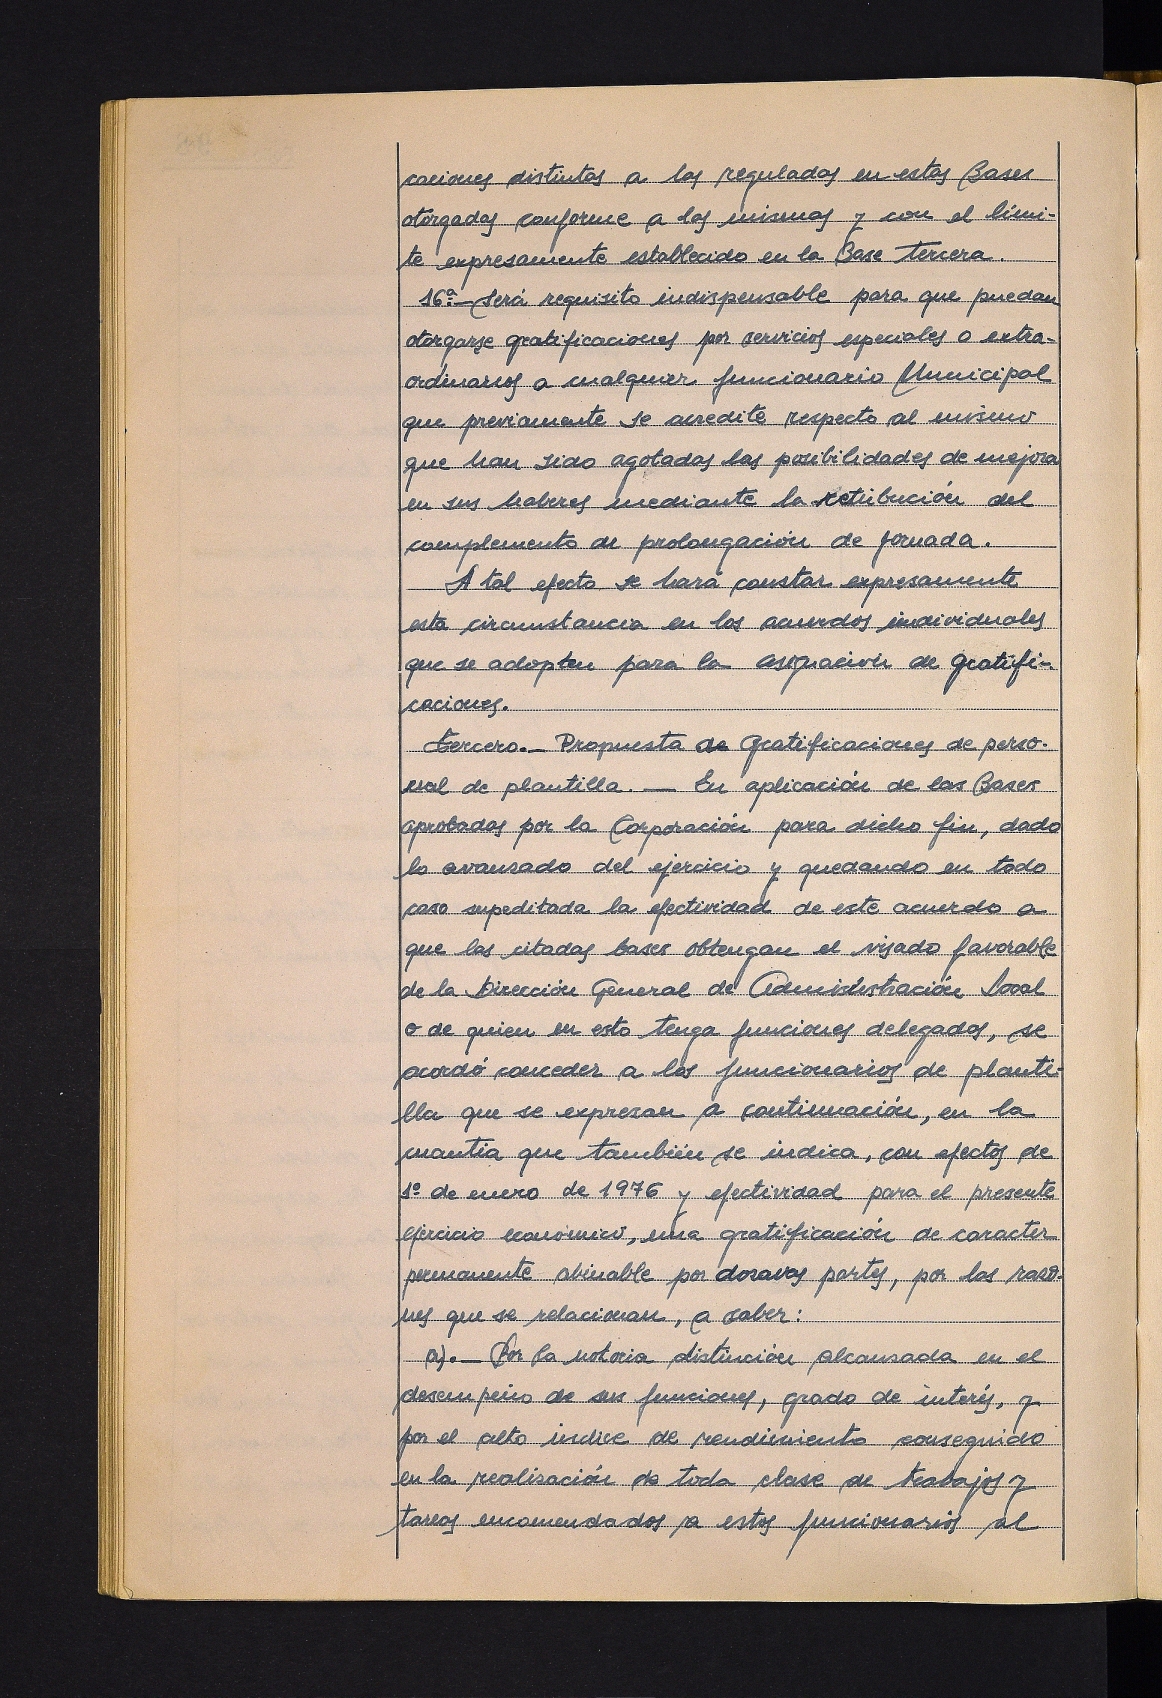 caciones distintas a las reguladas en estas Bases
otorgadas conforme a las mismas y con el lími-
te expresamente establecido en la Base tercera.
16ª.- Será requisito indispensable para que puedan
otorgarse gratificaciones por servicios especiales o extra-
ordinarios a cualquier funcionario Municipal
que previamente se acredite respecto al mismo
que han sido agotadas las posibilidades de mejora
en sus haberes mediante la retribución del
complemento de prolongación de jornada.
A tal efecto se hará constar expresamente
esta circunstancia en los acuerdos individuales
que se adopten para la asignación de gratifi-
caciones.
Tercero.- Propuesta de Gratificaciones de perso-
nal de plantilla. — En aplicación de las Bases
aprobadas por la Corporación para dicho fin, dado
lo avanzado del ejercicio y quedando en todo
caso supeditada la efectividad de este acuerdo a
que las citadas bases obtengan el visado favorable
de la Dirección General de Administración Local
o de quien en esto tenga funciones delegadas, se
acordó conceder a los funcionarios de planti-
lla que se expresan a continuación, en la
cuantía que también se indica, con efectos de
1º de enero de 1976 y efectividad para el presente
ejercicio económico, una gratificación de caracter
permanente abinable por doravas partes, por las razo-
nes que se relacionan, a saber:
a).- Por la notoria distinción alcansada en el
desempeño de sus funciones, grado de interés, y
por el alto indice de rendimiento conseguido
en la realisación de toda clase de trabajos y
tareas encomendados a estos funcionarios al